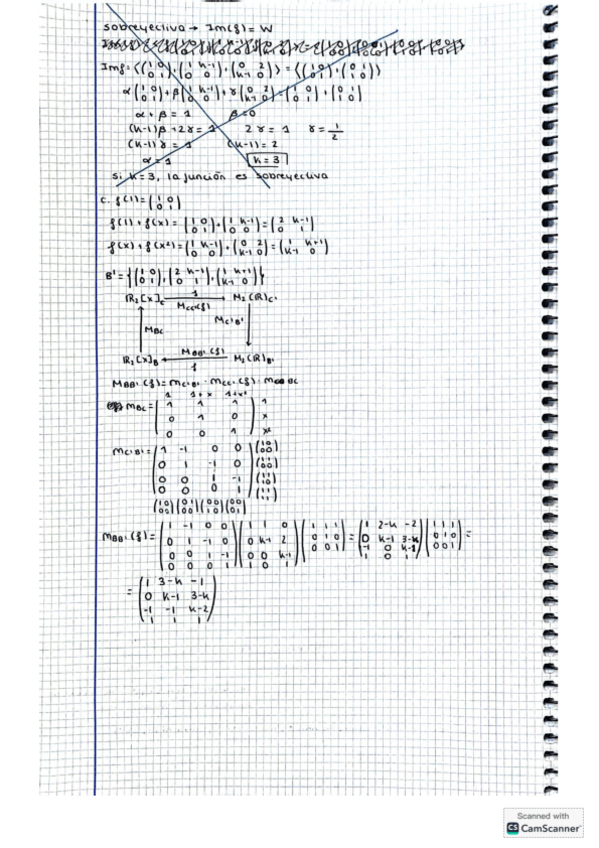 sobreyectiva → Im(f) = W
Imf = ⟨(1 0; 0 1), (1 k-1; 0 0), (0 2; k-1 0)⟩ = ⟨(1 0; 0 1), (0 1; 1 0)⟩
α(1 0; 0 1) + β(1 k-1; 0 0) + γ(0 2; k-1 0) = (1 0; 0 1) + (0 1; 1 0)
α + β = 1 β = 0
(k-1)β + 2γ = 1 2γ = 1 γ = 1/2
(k-1)γ = 1 (k-1) = 2
α = 1 k = 3
Si k = 3, la función es sobreyectiva
c. f(1) = (1 0; 0 1)
f(1) + f(x) = (1 0; 0 1) + (1 k-1; 0 0) = (2 k-1; 0 1)
f(x) + f(x²) = (1 k-1; 0 0) + (0 2; k-1 0) = (1 k+1; k-1 0)
B' = {(1 0; 0 1), (2 k-1; 0 1), (1 k+1; k-1 0)}
ℝ₂[x]c 1 M₂(ℝ)c'
Mcc'(f)
MBC Mc'B'
MBB'(f)
ℝ₂[x]B 1 M₂(ℝ)B'
MBB'(f) = Mc'B' · Mcc'(f) · MBC
1 1+x 1+x²
MBC = (1 1 1; 0 1 0; 0 0 1) 1 x x²
Mc'B' = (1 -1 0 0; 0 1 -1 0; 0 0 1 -1; 0 0 0 1) (1 0; 0 0) (1 1; 0 0) (1 1; 1 0) (1 1; 1 1)
(1 0; 0 0) (0 1; 0 0) (0 0; 1 0) (0 0; 0 1)
MBB'(f) = (1 -1 0 0; 0 1 -1 0; 0 0 1 -1; 0 0 0 1) (1 1 0; 0 k-1 2; 0 0 k-1; 1 0 0) (1 1 1; 0 1 0; 0 0 1) = (1 2-k -2; 0 k-1 3-k; -1 0 k-1; 1 0 1) (1 1 1; 0 1 0; 0 0 1) =
= (1 3-k -1; 0 k-1 3-k; -1 -1 k-2; 1 1 1)
Scanned with
CS CamScanner